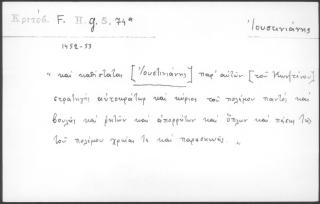 Κριτόβ. F. II. g. 5, 74ª
Ἰουστινιάνης
1452-53
" καὶ καθίσταται [Ἰουστινιάνης] παρ' αὐτῶν [τοῦ Κων/τίνου]
στρατηγὸς αὐτοκράτωρ καὶ κύριος τοῦ πολέμου παντὸς καὶ
βουλῆς καὶ ῥητῶν καὶ ἀπορρήτων καὶ ὅπλων καὶ πάσης τῆς
τοῦ πολέμου χρείας τε καὶ παρασκευῆς. "